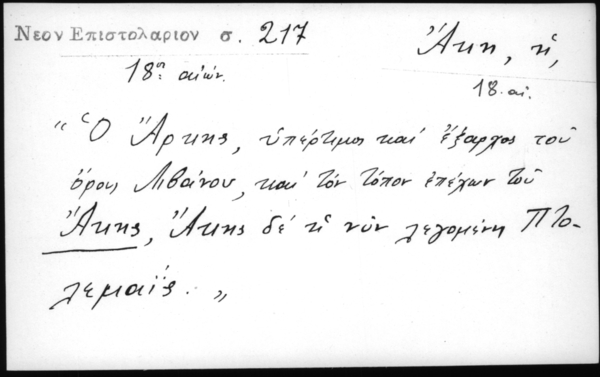 Νεον Επιστολαριον σ. 217
Ἄκη, ἡ,
18η αἰών.
18. αἰ.
"Ὁ Ἄρκης, ὑπέρτιμος καί ἔξαρχος τοῦ
ὄρους Λιβάνου, καί τόν τόπον ἐπέχων τοῦ
Ἄκης, Ἄκης δέ ἡ νῦν λεγομένη Πτο-
λεμαΐς. "